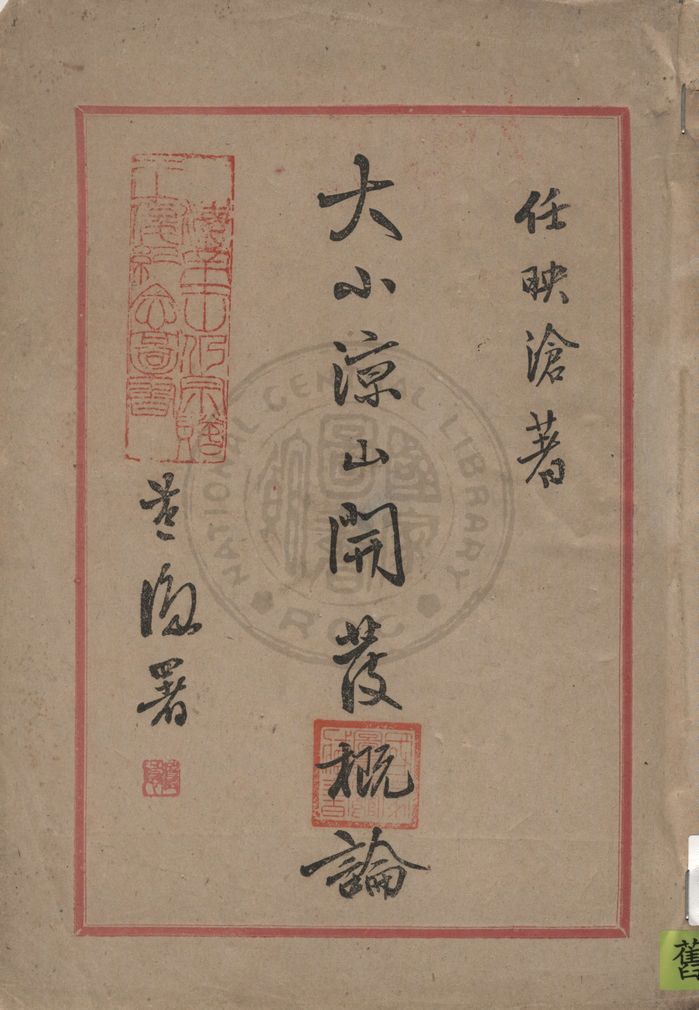 任映滄著
大小涼山開發概論
署
NATIONAL CENTRAL LIBRARY
R.O.C.
國家圖書館
舊